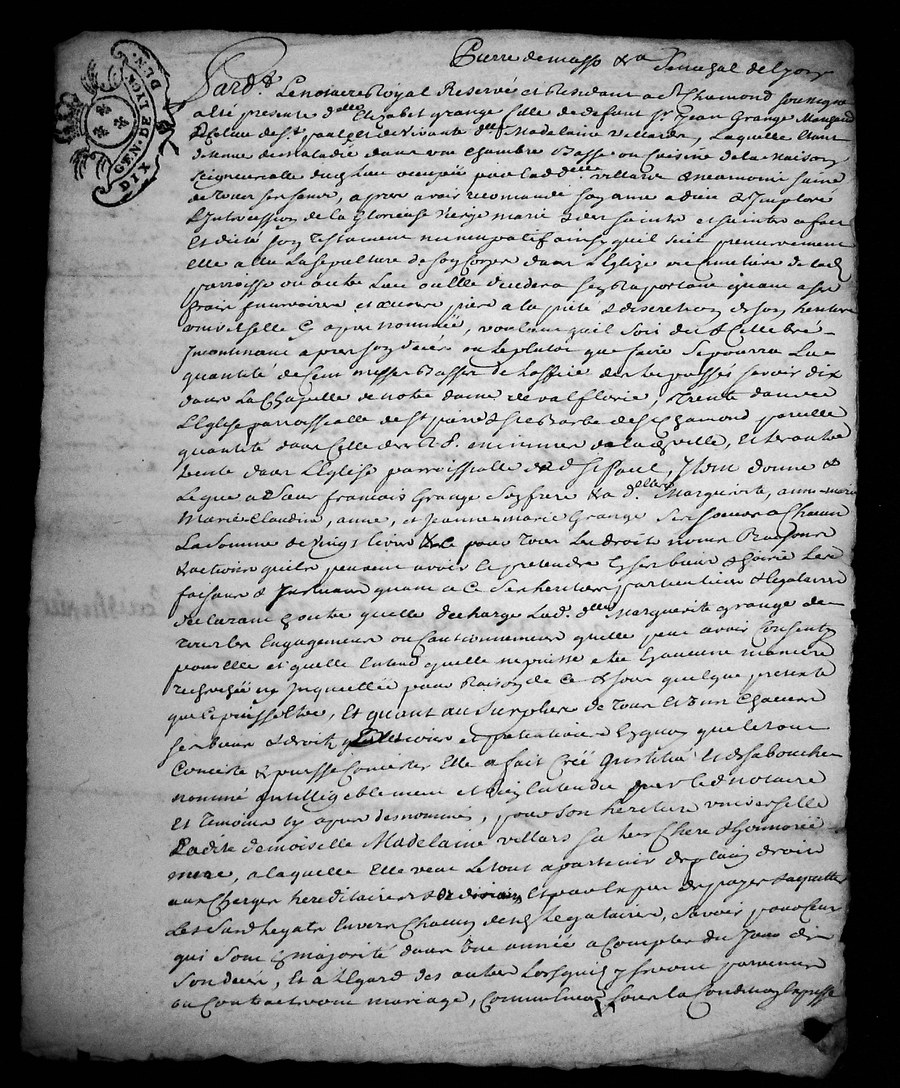 GEN. DE LYON
DIX
DEN.
Pierre demasso &a Senechal de Lyon
Pard.t Le notaire Royal Reservé et Residant a St Chamond soussigné
a Eté presente d.elle Elizabet grange fille de defunt Sr Jean Grange
de St paul et de vivante d.elle Madelaine villards, Laquelle Etant
detenue de maladie dans une chambre Basse ou Cuisine de la maison
Seigneuriale du lieu occupée par lad. d.elle villars & neamoins saine
de tous ses sens, apres avoir recomandé son ame a dieu & Imploré
L'Intercession de la Glorieuse Vierge marie & des saints et saintes a fait
Et dicté son Testament nuncupatif ainsy quil suit premierement
Elle a Elu La sepulture de son Corps dans L'Eglise ou Cimetiere de lad.
parroisse ou autre Lieu ou Elle decedera se raportant quant a ses
frais funeraires et œuvres pies a la pieté & discretion de son heritiere
universelle cy apres nommée, voulant quil soit dit & Cellebré
Incontinant apres son deces ou le plutot que faire se pourra La
quantité de Cent messes Basses de L'office des trepassés savoir dix
dans La Chapelle de notre dame de valflorie, Trente dans
L'Eglise parroissialle de St pierre & Ste Barbe de St Chamond pareille
quantité dans Celle des R. P. minimes de lad. ville, Et les autres
trente dans L'Eglise parroissialle de St Paul, Item donne &
Legue a Sieur francois Grange son frere & a d.elles Marguerite, anne-marie
Marie-Claudine, anne, et Jeanne-marie Grange ses soeurs a Chacun
La somme de vingt livres pour Tous Les droits noms Raisons
& actions quils peuvent avoir & pretendre En ses biens & hoirie Les
faisant & Instituant quant a Ce ses heritiers particuliers & legataires
declarant En outre quelle decharge Lad. d.elle Marguerite grange de
Tous les Engagemens ou Cautionnemens quelle peut avoir Consenty
pour Elle et quelle Entend quelle ne puisse etre En aucune maniere
recherchée ny Inquiettée pour Raison de Ce & sous quelque pretexte
que Ce puisse Etre, Et quant au surplus de Tous Et Uns Chacuns
ses biens & droits En quoy que le tout
Conciste & puisse Concister Elle a fait Créé Institué Et de sa bouche
nommé Intelligiblement et bien Entendu par led notaire
Et Temoins cy apres denommés, pour son heritiere universelle
Ladite demoiselle Madelaine villars sa tres Chere & honnorée
mere, a laquelle Elle veut Le tout apartenir de plain droit
aux Charges hereditaires Et de payer & aquitter
Les susd legats Envers Chacun desd Legataires, savoir pour Ceux
qui sont En majorité dans Une année a Compter du Jour de
son deces, Et a L'Egard des autres Lorsquils y seront parvenus
ou Contracteront mariage, sous la Condition Expresse